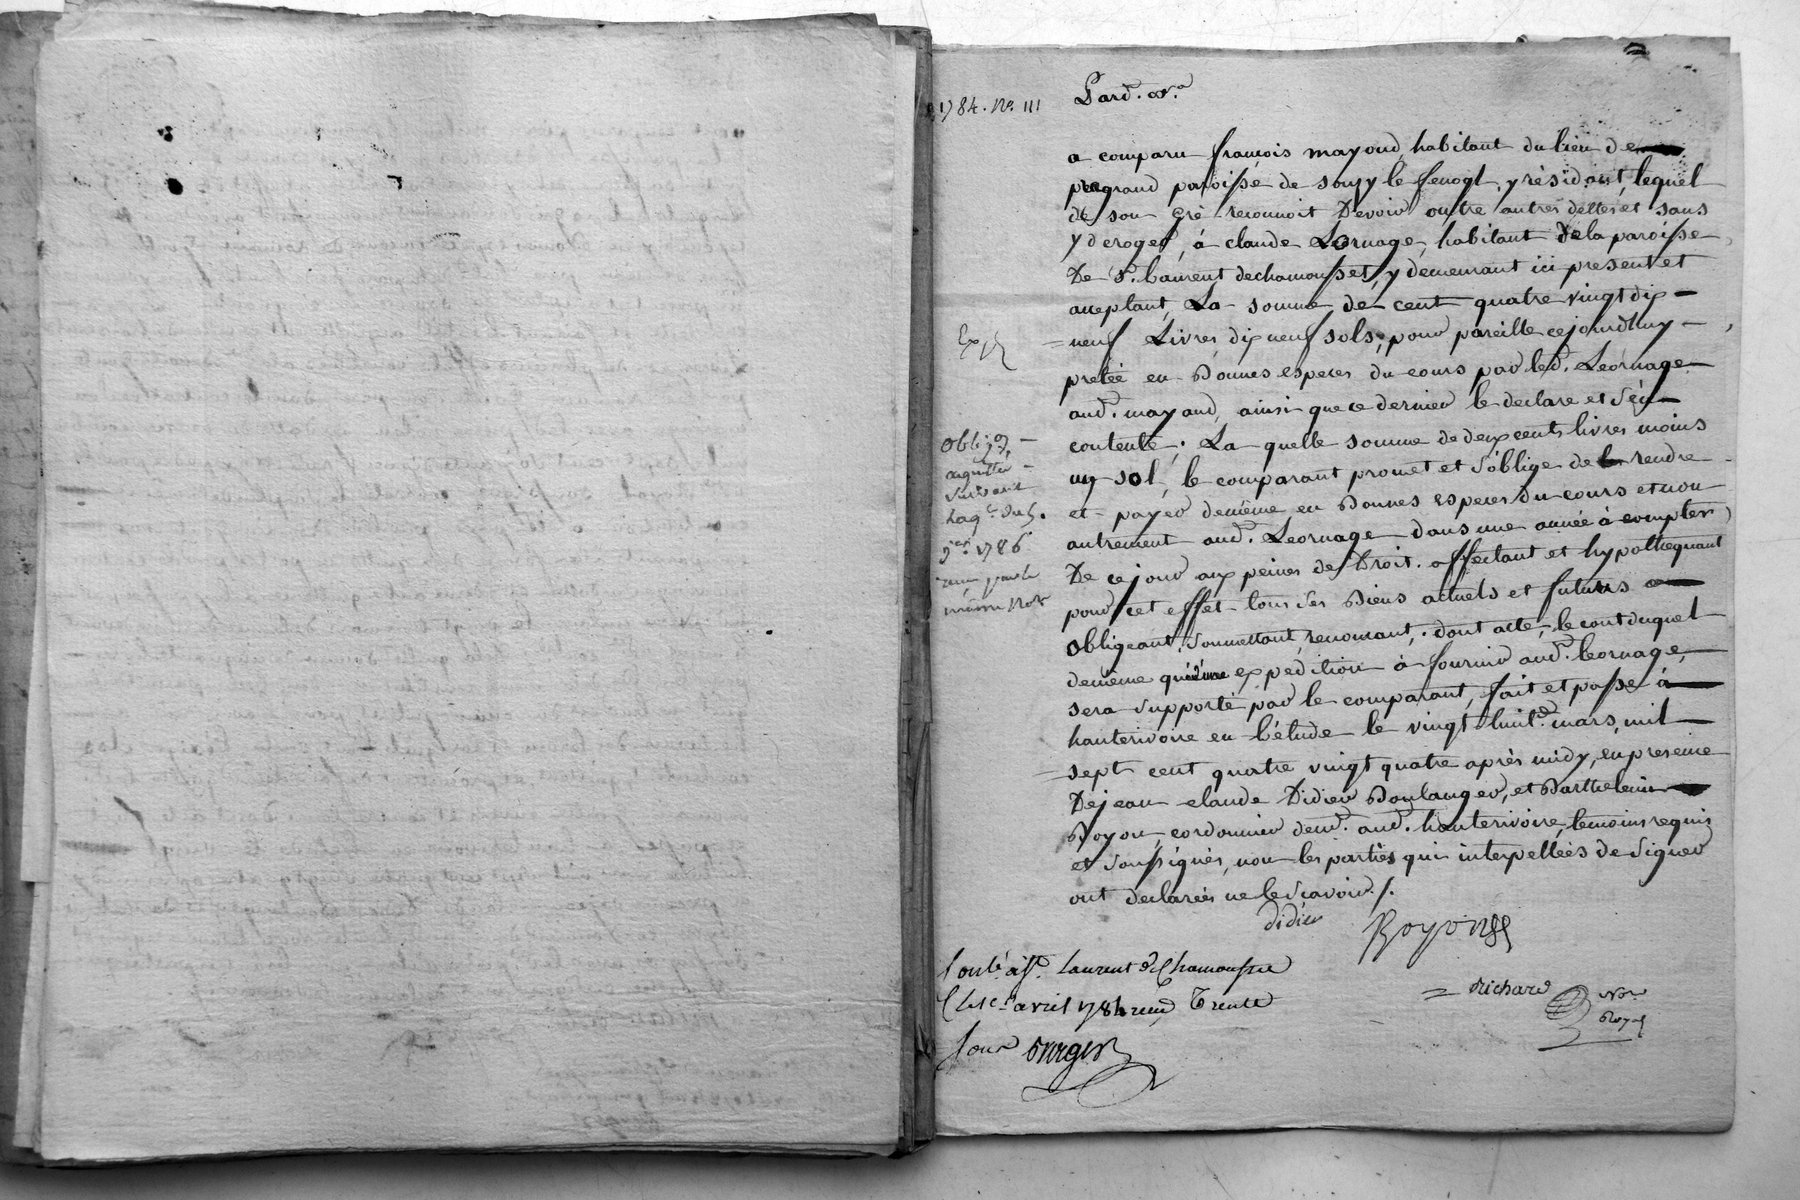 1784. No. 111
Pard. Nre
a comparu françois mayoud habitant du lieu de
pregrand paroisse de souzy le fenogl, y résidant, lequel
de son gré reconnoit Devoir outre autres dettes et sans
y deroger, à claude Leornage, habitant de la paroisse
De St. laurent de chamousset, y demeurant ici present et
acceptant, La somme de cent quatre vingt dix
neuf Livres dix neuf sols, pour pareille cejourdhuy
pretée en Bonnes especes du cours par led. Leornage
aud. mayoud, ainsi que ce dernier le declare et s'en
contente; La quelle somme de deux cents livres moins
un sol, le comparant promet et s'oblige de rendre
et payer de même en Bonnes especes du cours et non
autrement aud. Leornage dans une année à compter
De ce jour aux peines de Droit. affectant et hypothequant
pour cet effet tous ses Biens actuels et futurs
obligeant, soumettant, renoncant, . dont acte, le cout duquel
de même qu'une expedition à fournir aud. leornage,
sera supporté par le comparant, fait et passé à
hauterivoire en l'étude le vingt huit mars mil
sept cent quatre vingt quatre après midy, en presence
De jean claude Didier Boulanger, et Barthelemi
Boyon, cordonnier demt. aud. hauterivoire, temoins requis
et soussignés, non les parties qui interpellées de signer
ont declarées ne le scavoir /.
Exp
obligon
acquittée
suivant
laq.
9er 1786
reçu par le
même Nore
didier
Boyon
Conlé. à St. laurent de Chamousset
Le avril 1784 reçu Trente
sous
richard
Nre
Royal